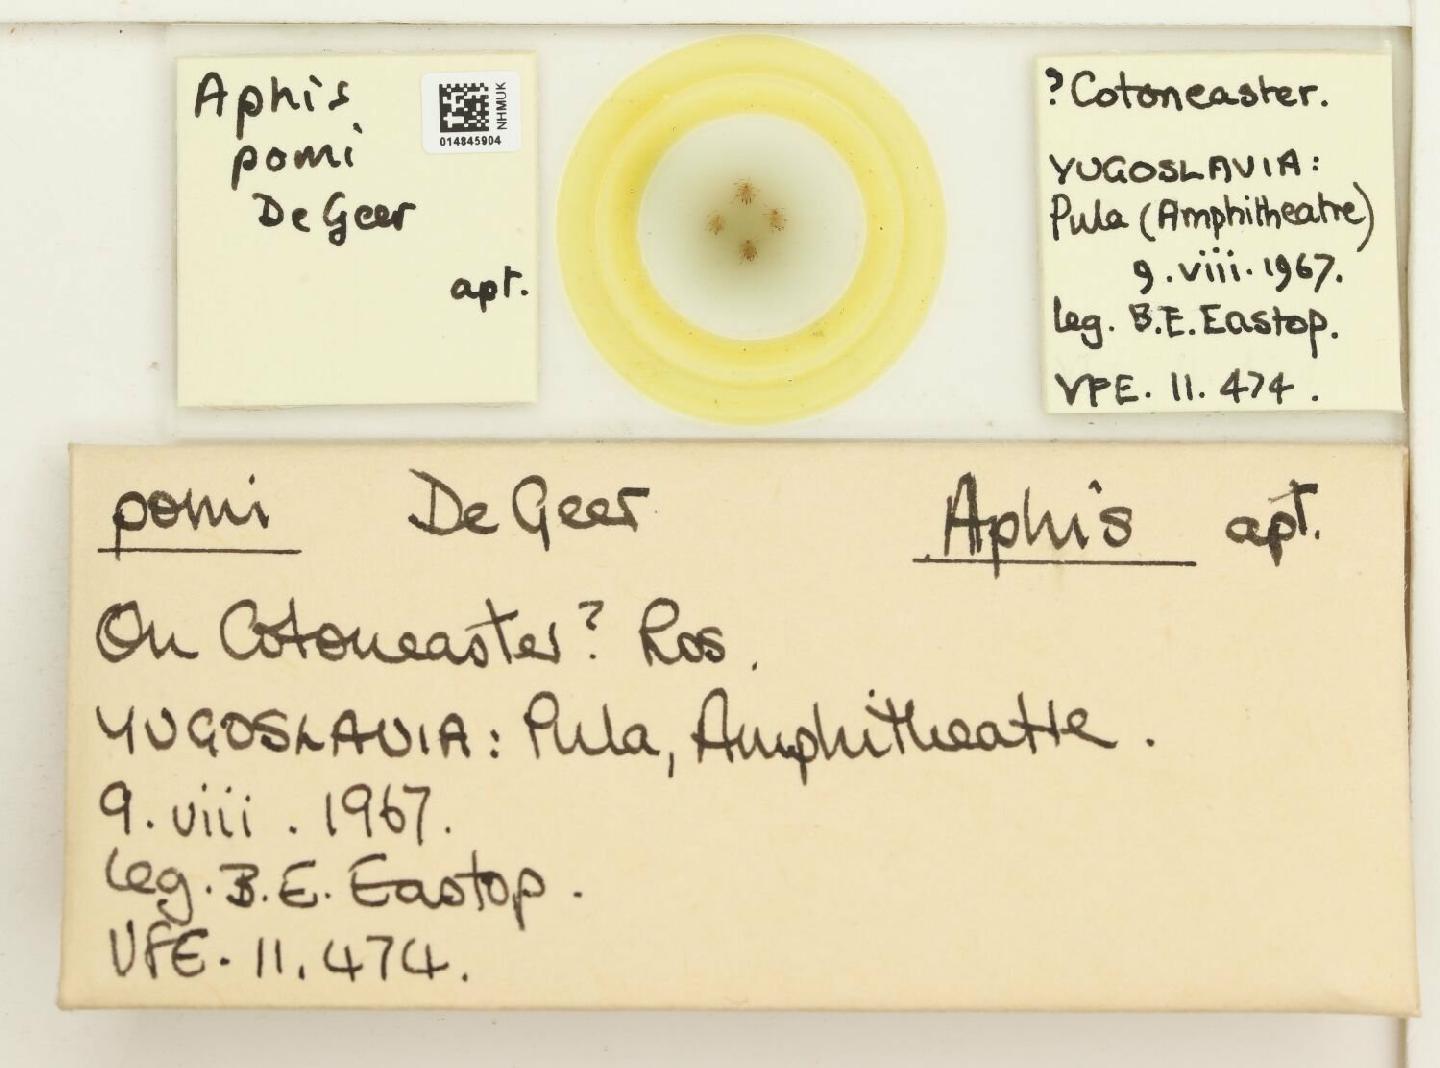 Aphis
pomi
De Geer
apt.
NHMUK
014845904
?Cotoneaster.
YUGOSLAVIA:
Pula (Amphitheatre)
9.viii.1967.
leg. B.E.Eastop.
VFE. 11. 474.
pomi De Geer Aphis apt.
On Cotoneaster? Ros.
YUGOSLAVIA: Pula, Amphitheatre.
9.viii.1967.
leg. B.E. Eastop.
VFE. 11. 474.